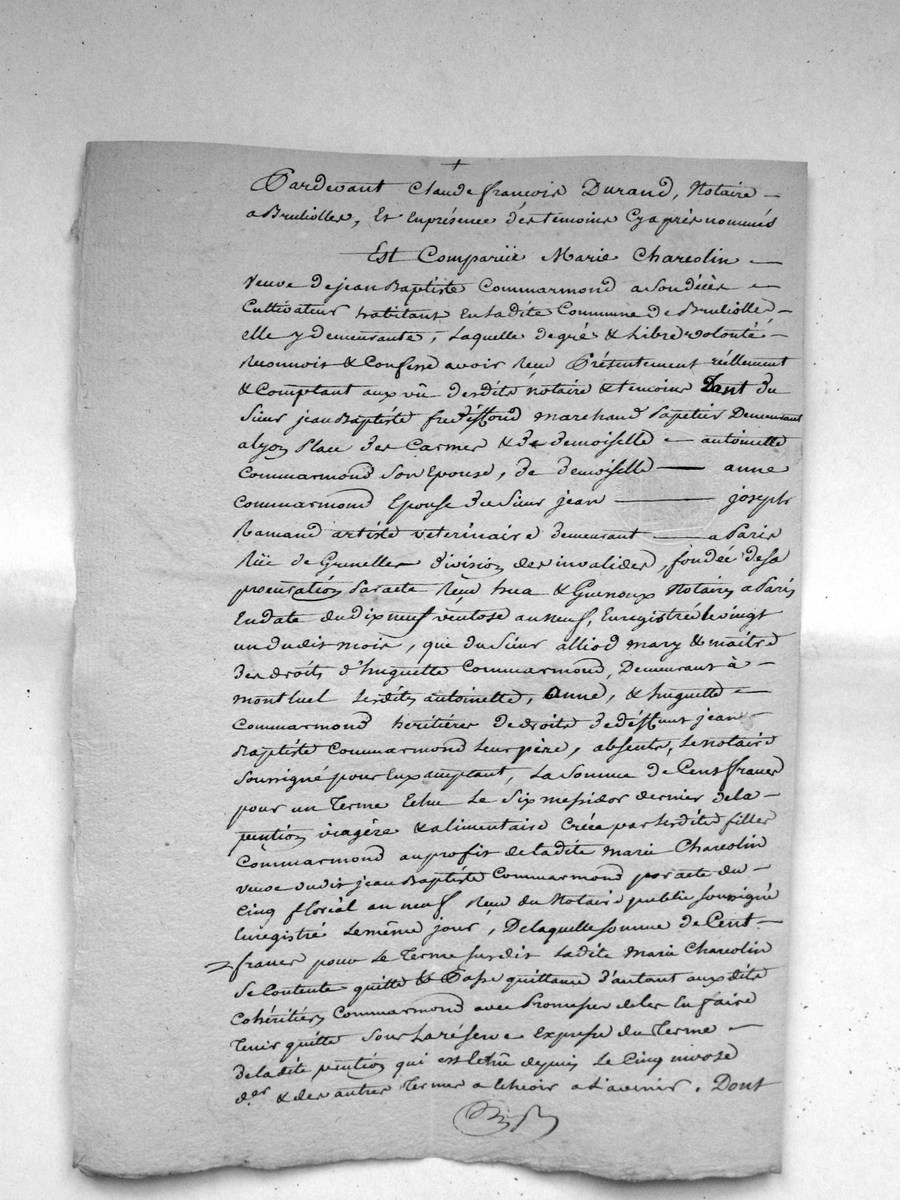 +
Pardevant Claude françois Durand, Notaire
a Brulliolles, Et En présence des temoins Cy après nommés
Est Comparüe Marie Chareolin
Veuve de jean Baptiste Commarmond a son décès
Cultivateur habitant En ladite Commune de Brulliolle,
elle y demeurante, laquelle de gré & libre volonté
Reconnoit & Confesse avoir Reçu Présentement réellement
& Comptant aux vû desdits Notaire & temoins tant du
Sieur jean Baptiste marchand Papetier Demeurant
a lyon Place des Carmes & de demoiselle antoinette
Commarmond Son Epouse, de demoiselle anne
Commarmond Epouse du Sieur jean joseph
Ramand artiste veterinaire demeurant a Paris
Rüe de Grenelles division des invalides, fondée de sa
procuration Par acte Reçu & Guenoux Notaires a Paris
En date du dix neuf ventose an neuf, Enregistré le vingt
un dudit mois, que du Sieur alliod mary & maitre
des droits d'huguette Commarmond, Demeurant à
montluel lesdites antoinette, anne, & huguette
Commarmond heritières de droits de déffunt jean
Baptiste Commarmond leur père, absents, le notaire
Soussigné pour Eux acceptant, la Somme de Cent francs
pour un Terme Echu le Six messidor dernier de la
pention viagère & alimentaire Créée par lesdites filles
Commarmond au profit de ladite marie Chareolin
veuve dudit jean Baptiste Commarmond par acte du
Cinq floréal an neuf Reçu du Notaire public soussigné
Enregistré le même jour, De laquelle somme de Cent
francs pour le Terme susdit ladite marie Chareolin
Se Contente quitte & Passe quittance d'autant aux dits
Cohéritiers Commarmond avec Promesse de les En faire
Tenir quitte Sous la réserve Expresse du Terme
de ladite pention qui est Echu depuis le Cinq nivose
der & des autres Termes a Echeoir a l'avenir. Dont